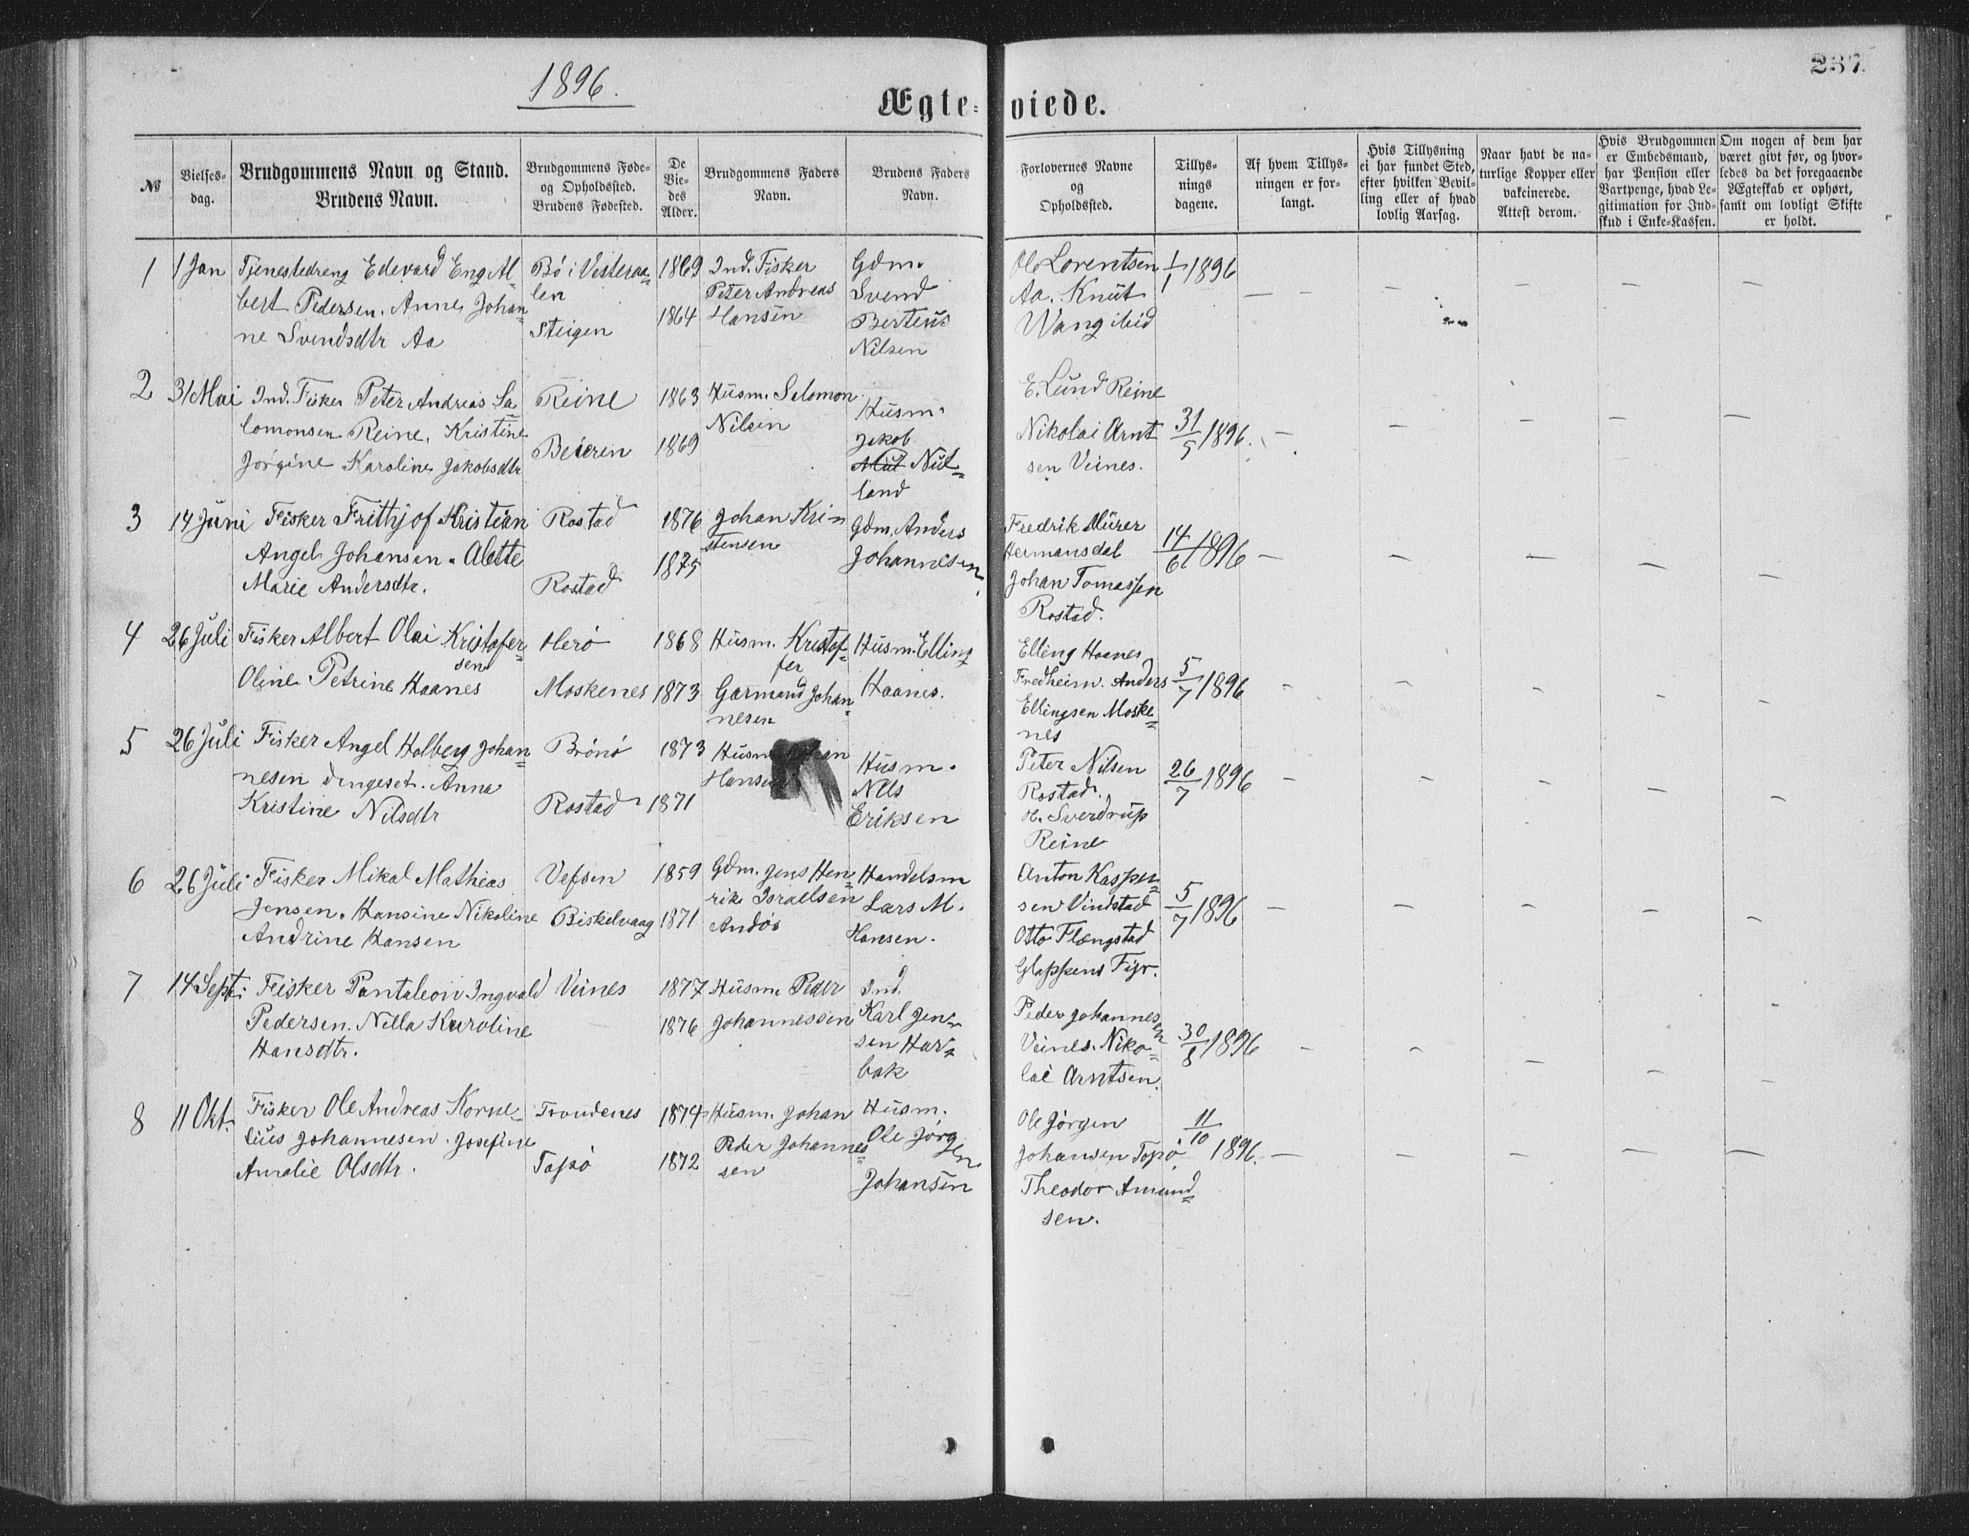 1896.
237.
Ægte-viede.
№
Vielses-
dag.
Brudgommens Navn og Stand.
Brudens Navn.
Brudgommens Føde-
og Opholdssted.
Brudens Fødested.
De
Vie-
des
Alder.
Brudgommens Faders
Navn.
Brudens Faders
Navn.
Forlovernes Navne
og
Opholdssted.
Tillys-
nings
dagene.
Af hvem Tillys-
ningen er for-
langt.
Hvis Tillysning
ei har fundet Sted,
efter hvilken Bevil-
ling eller af hvad
lovlig Aarsag.
Naar havt de na-
turlige Kopper eller
vakcinerede.
Attest derom.
Hvis Brudgommen
er Embedsmand,
har Pension eller
Vartpenge, hvad Le-
gitimation for Ind-
skud i Enke-Kassen.
Om nogen af dem har
været givt før, og hvor-
ledes da det foregaaende
Ægteskab er ophørt,
samt om lovligt Skifte
er holdt.
1
1 Jan
Tjenestedreng Edevard Eng Al-
bert Pedersen. Anne Johan-
ne Svendsdtr Aa
Bö i Vesteraa-
len
Steigen
1869
1864
Ind. Fisker
Peter Andreas
Hansen
Gdm.
Svend
Berteus
Nilsen
Ole Lorentsen
Aa. Knut
Wang ibid
1/1 1896
2
31 Mai
Ind. Fisker Peter Andreas Sa
lomonsen Reine. Kristine
Jörgine Karoline Jakobsdtr
Reine
Beieren
1863
1869
Husm. Salomon
Nilsen
Husm.
Jakob
Nut-
land
E. Lund Reine
Nikolai Arnt
sen Veines.
31/5 1896.
3
14 Juni
Fisker Frithjof Kristian
Angel Johansen. Alette
Marie Andersdtr.
Rostad
Rostad
1876
1875
Johan Kri
stensen
Gdm. Anders
Johannesen
Fredrik Mürer
Hermansdal
Johan Tomassen
Rostad.
14/6 1896
4
26 Juli
Fisker Albert Olai Kristofer-
sen
Oline Petrine Haanes
Herö
Moskenes
1868
1873
Husm. Kristof-
fer
Garmand Johan-
nesen
Husm. Elling
Haanes.
Elling Haanes
Fredheim. Anders
Ellingsen Moske-
nes
5/7 1896
5
26 Juli
Fisker Angel Holberg Johan-
nesen Engeset. Anna
Kristine Nilsdtr
Brönö
Rostad
1873
1871
Husm. Johan
Hansen
Husm.
Nils
Eriksen
Peter Nilsen
Rostad.
H. Sverdrup
Reine
26/7 1896
6
26 Juli
Fisker Mikal Mathias
Jensen. Hansine Nikoline
Andrine Hansen
Vefsen
Biskelvaag
1859
1871
Gdm. Jens Hen-
rik Israelsen
Andös
Handelsm
Lars M.
Hansen.
Anton Kasper-
sen Vindstad
Otto Flængstad
Glappens Fyr.
5/7 1896
7
14 Sept.
Fisker Pantaleon Ingvald
Pedersen. Nella Karoline
Hansdtr.
Veines
1877
1876
Husm. Peder
Johannessen
Ind.
Karl Jen-
sen Har-
bak
Peder Johannes
en
Veines. Niko-
lai Arntsen.
30/8 1896
8
11 Okt.
Fisker Ole Andreas Korne-
lius Johannesen. Josefine
Amalie Olsdtr.
Trondenes
Topö
1874
1872
Husm. Johan
Peder Johannes-
sen
Husm.
Ole Jörg
en
Johansen
Ole Jörgen
Johansen Topö
Theodor Amund-
sen.
11/10 1896.